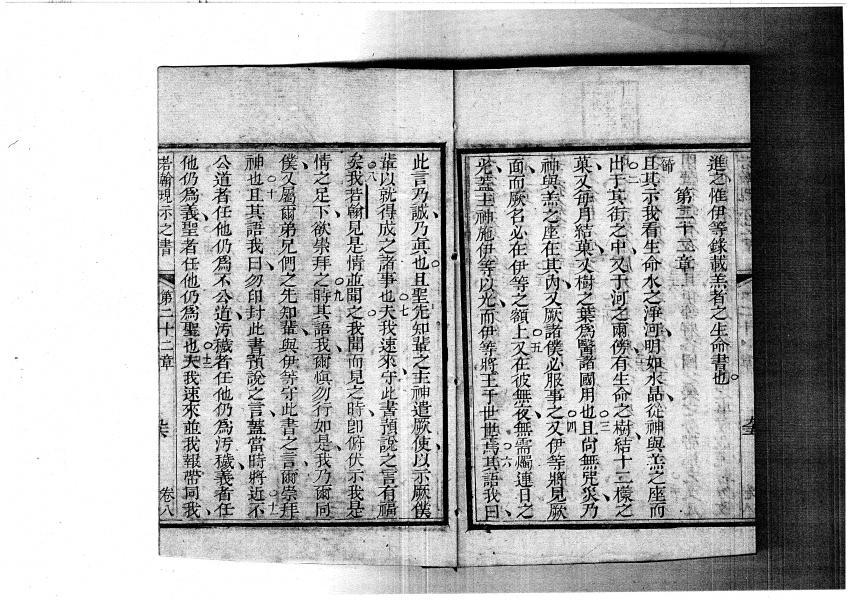 進之惟伊等錄載羔者之生命書也。
第二十二章
節
且其示我看生命水之淨河明如水晶從神與羔之座而
出于其街之中又于河之兩傍有生命之樹結十二樣之
菓又每月結菓又樹之葉爲醫諸國用也○三且尙無咒災乃
神與羔之座在其內又厥諸僕必服事之○四又伊等將見厥
面而厥名必在伊等之額上○五又在彼無夜無需燭連日之
光蓋主神施伊等以光而伊等將王于世世焉○六其語我曰
此言乃誠乃眞也且聖先知輩之主神遣厥使以示厥僕
輩以就得成之諸事也○七夫我速來守此書預說之言有福
矣○八我若翰見是情並聞之我聞而見之時卽俯伏示我是
情之足下欲崇拜之時○九其語我爾愼勿行如是我乃爾同
僕又屬爾弟兄們之先知輩與伊等守此書之言爾崇拜
神也○十且其語我曰勿印封此書預說之言蓋當時將近○十一不
公道者任他仍爲不公道汚穢者任他仍爲汚穢義者任
他仍爲義聖者任他仍爲聖也○十二夫我速來並我報帶同我
若翰現示之書
第二十二章
卷八